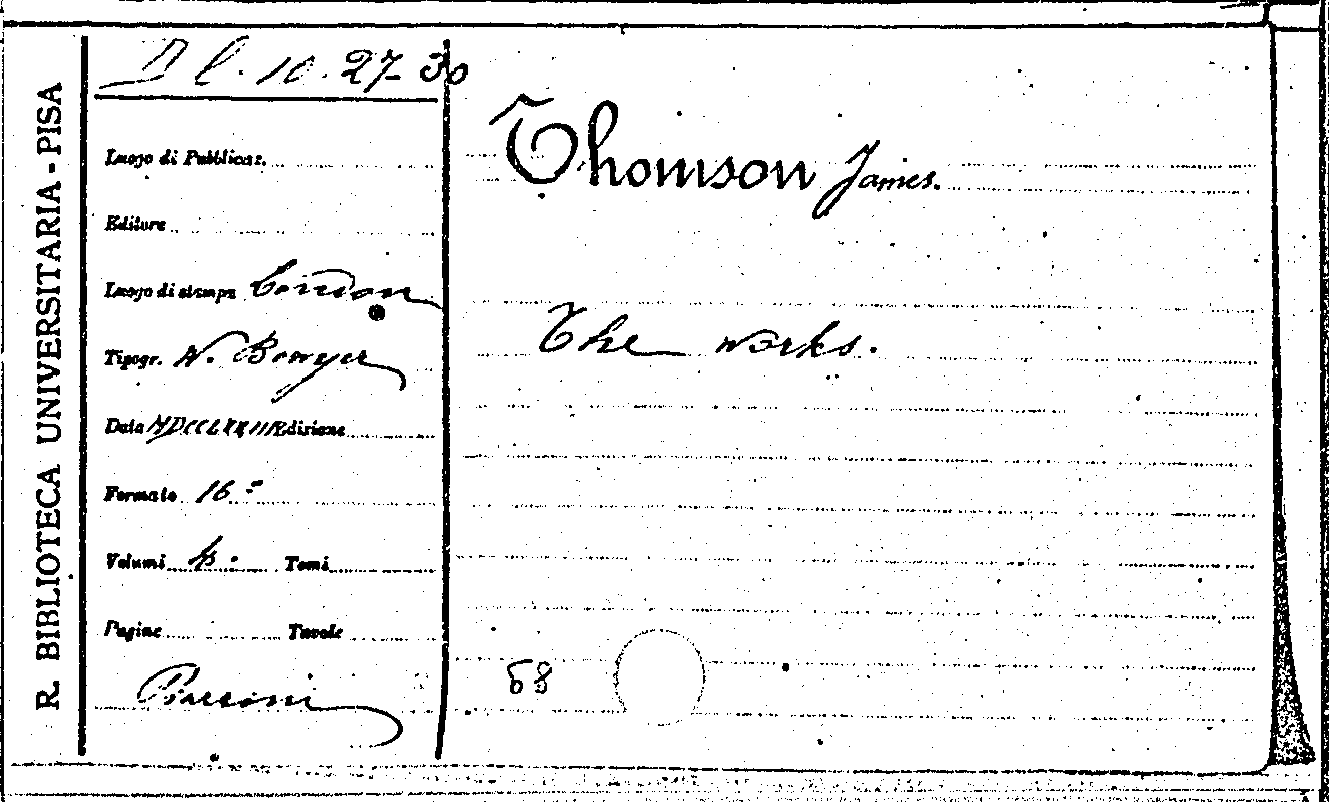 R. BIBLIOTECA UNIVERSITARIA - PISA
l. 10. 27-30
Luogo di Pubblicaz.
Editore
Luogo di stampa London
Tipogr. W. Bowyer
Data MDCCLXXIII Edizione
Formato 16º
Volumi 4. Tomi
Pagine Tavole
Thomson James.
The works.
68